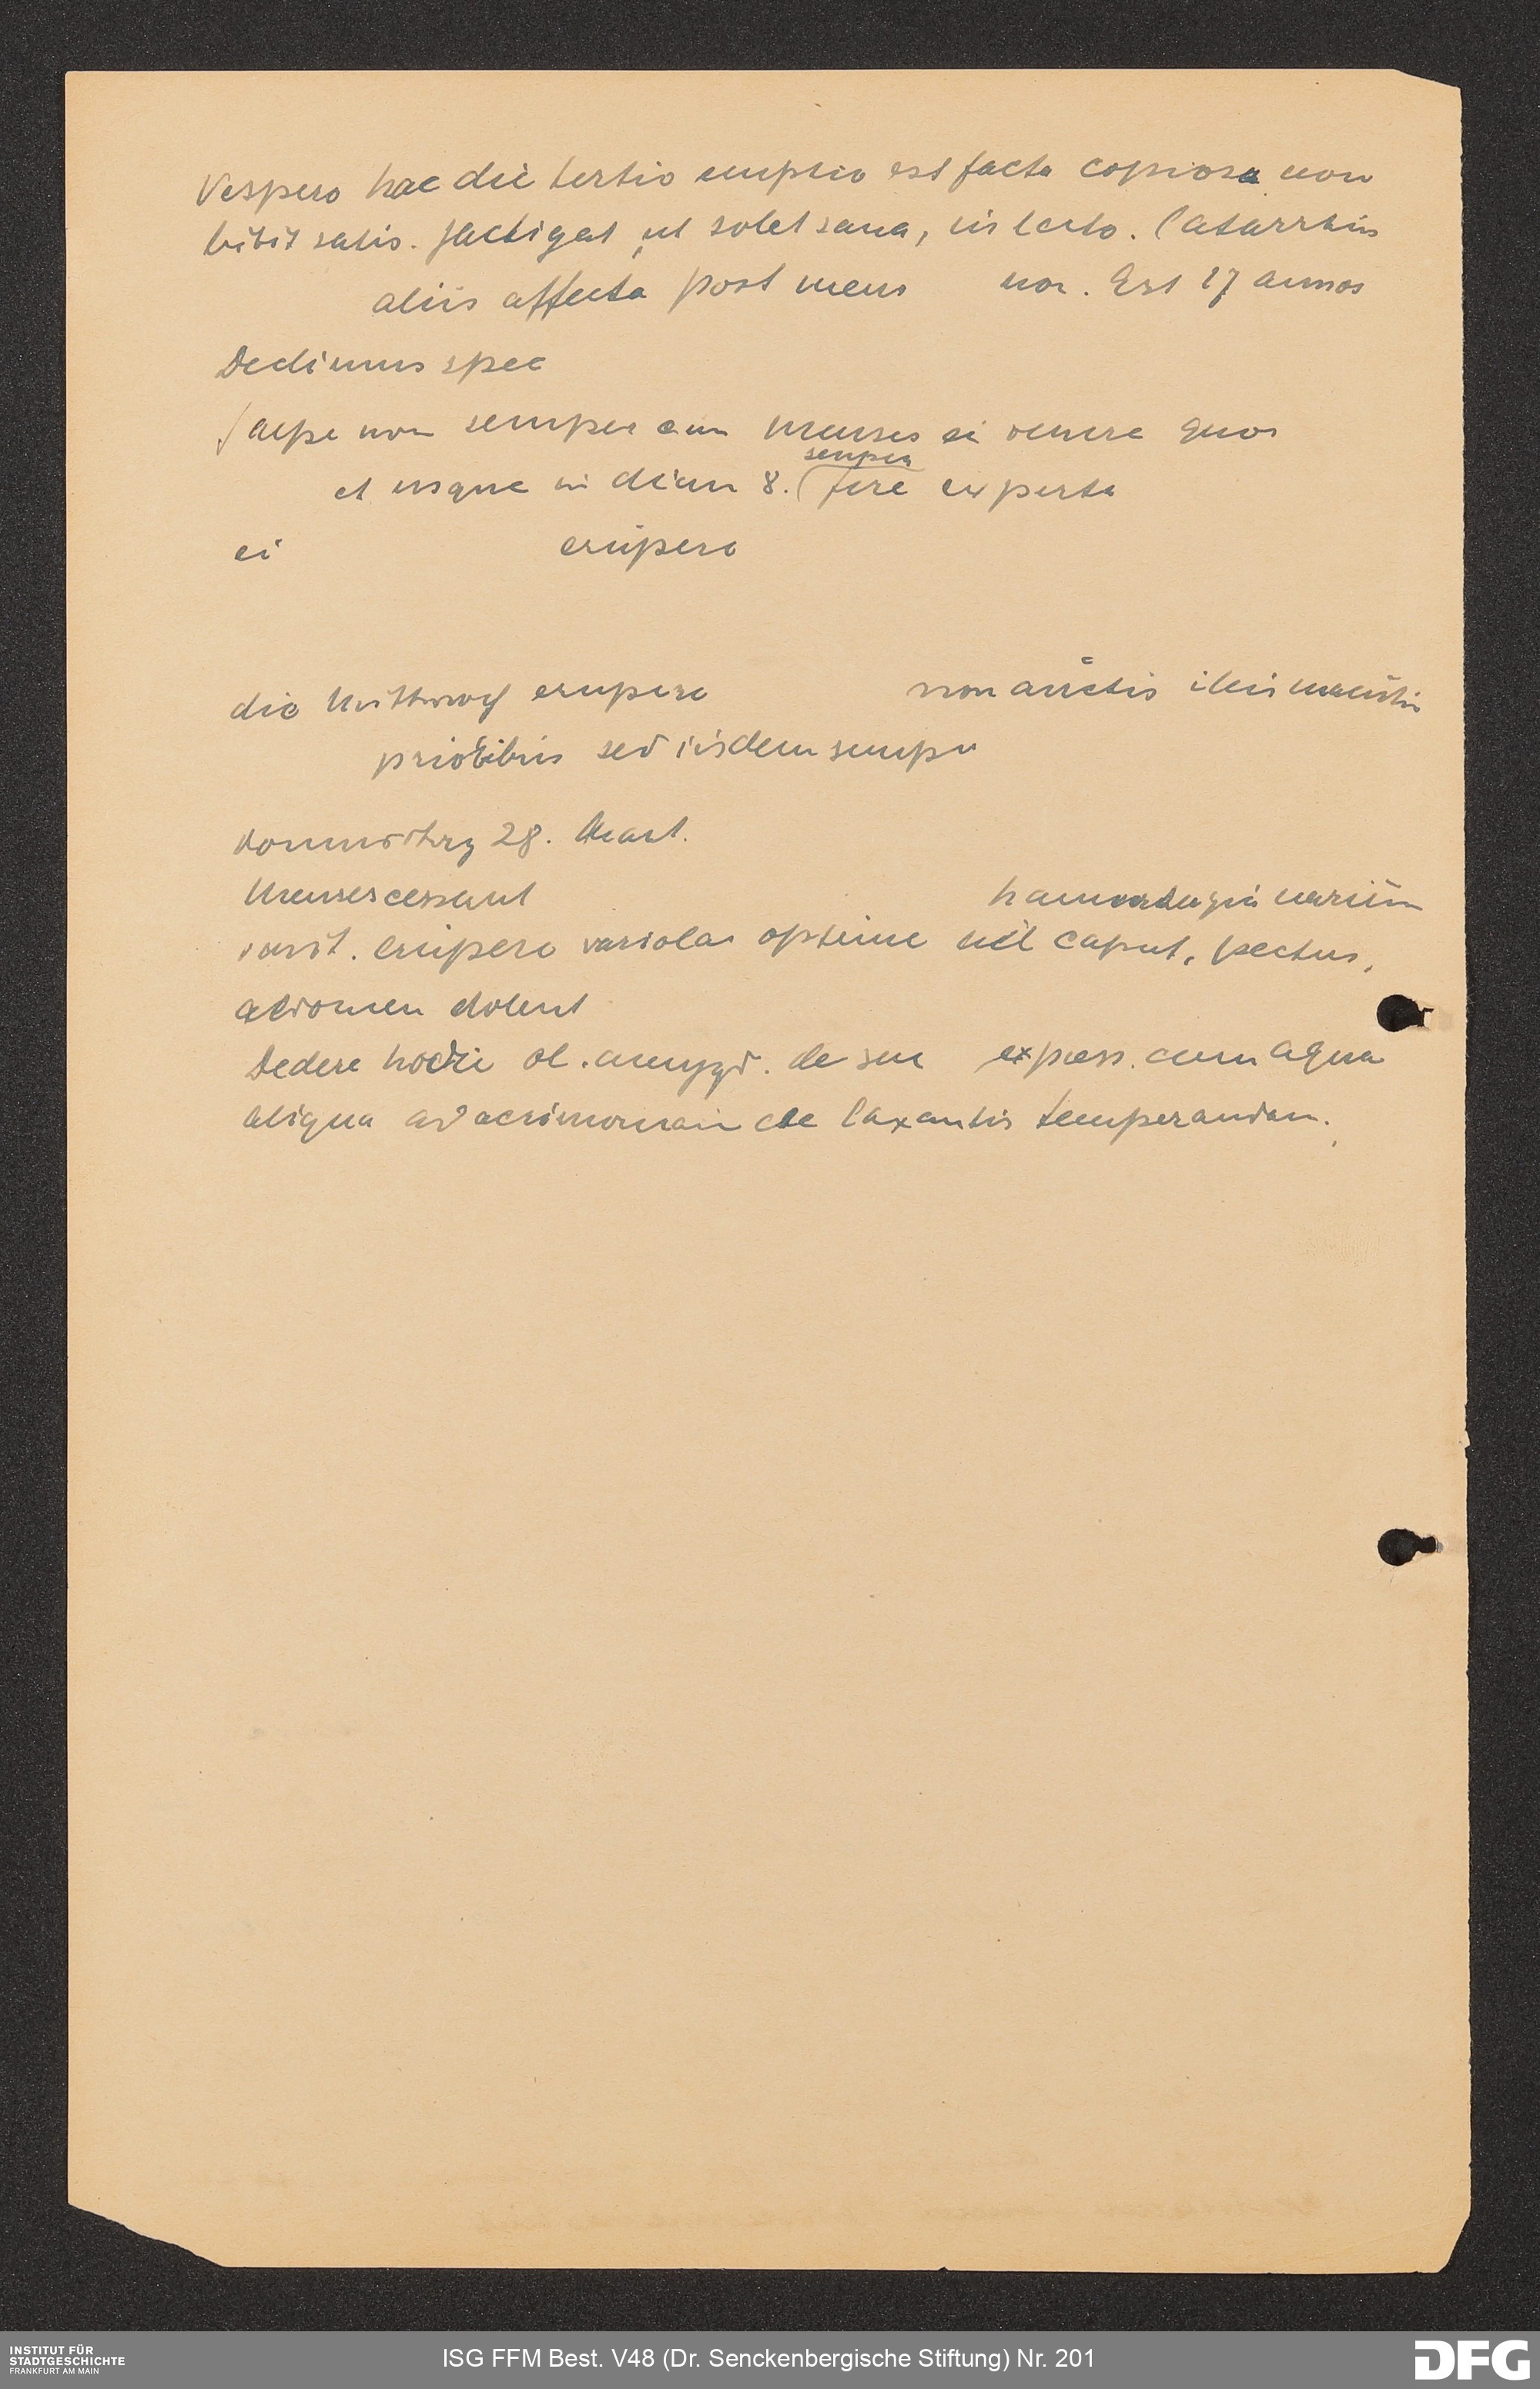 Vespero hac die tertio eruptio est facta copiosa non
bibit satis. Jactigat, ut solet sana, in lecto. Catarrhis
aliis affecta post mens nor. Est 17 annos
Dedimus spec
saepe non semper cum menses ei venere quos
semper
et usque in diem 8. (fere experta
ei erupere
die Mittwoch erupere non auctis illis
prioribus sed iisdem semper
Donnerstag 28. Mart.
Menses cessant haemorrhagia narium
erupere variolae optime nil caput, pectus,
abdomen dolent
Dedere hodie ol. amygd. de sem express. cum aqua
aliqua ad acrimoniam de laxantis temperandam.
INSTITUT FÜR
STADTGESCHICHTE
FRANKFURT AM MAIN
ISG FFM Best. V48 (Dr. Senckenbergische Stiftung) Nr. 201
DFG